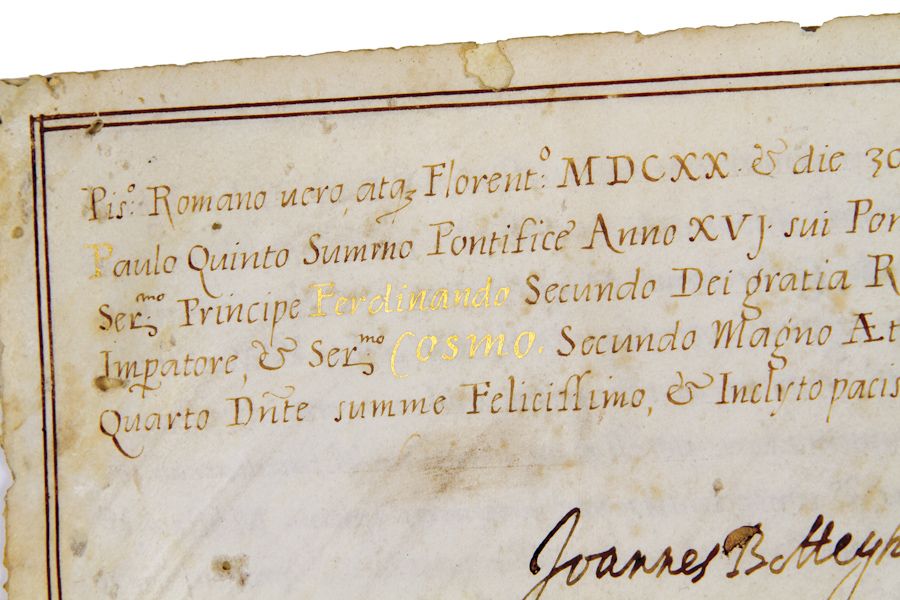 Pis.º Romano uero, atqꝫ Florent.º MDCXX. & die 30
Paulo Quinto Summo Pontifice Anno XVJ. sui Pon
Ser.mo Principe Ferdinando Secundo Dei gratia R
Imp̲atore, & Ser.mo Cosmo. Secundo Magno Æt
Quarto Dn̅te summe Felicissimo, & Inclyto pacis
Joannes B